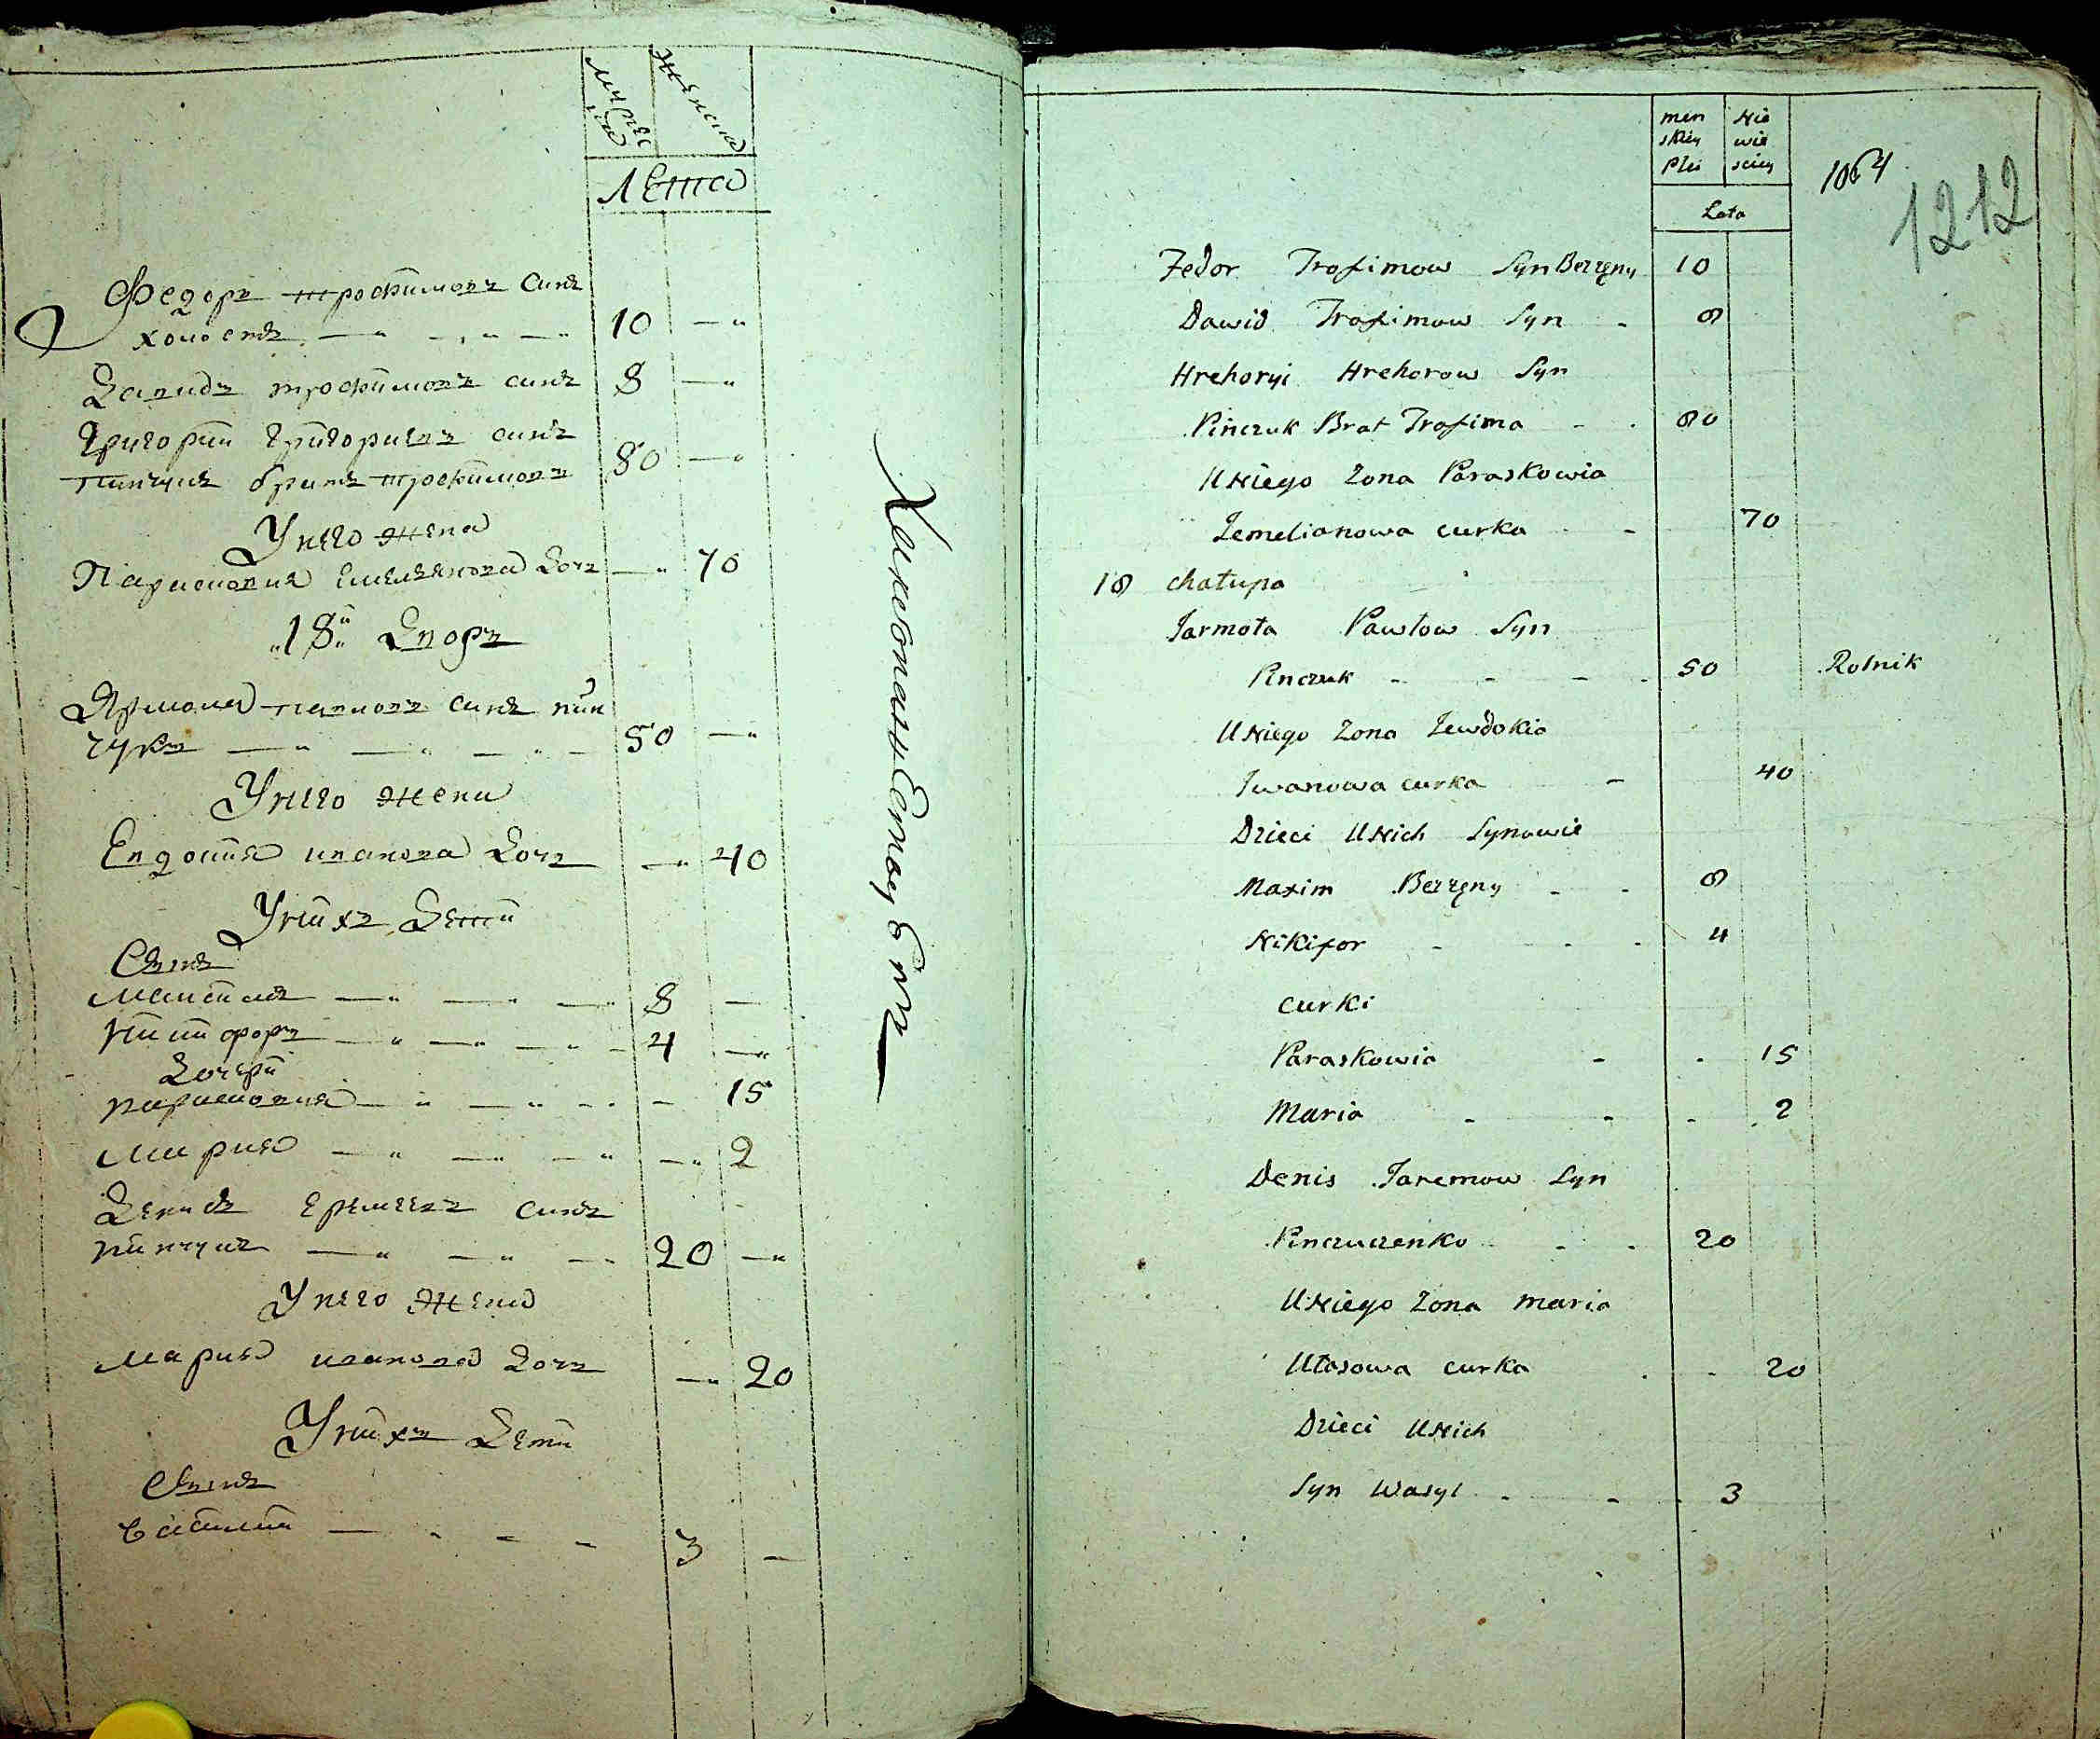 Мужеска Женска
Лета
Федоръ трофимовъ синъ
холостъ 10
Давидъ трофимовъ синъ 8
Григорий Григориевъ синъ
пинчукъ братъ трофимовъ 80
У него жена
Парасковия Емелянова Дочъ 70
18й Дворъ
Ярмола павловъ синъ пин
чукъ 50
У него жена
Евдокия иванова Дочъ 40
У нихъ Дети
Синъ
максимъ 8
никифоръ 4
Дочери
парасковия 15
мария 2
Денисъ еремеевъ синъ
пинчукъ 20
У него жена
мария иванова Дочъ 20
У нихъ Дети
Синъ
василий 3
men Nie
skiey wie
Płci sciey
Lata
1064
1212
Fedor Trofimow Syn Bezzęny 10
Dawid Trofimow Syn - 8
Hrehoryi Hrehorow Syn
Pinczuk Brat Trofima - - 80
U Niego Zona Paraskowia
Jemelianowa curka - 70
18 chałupa
Jarmoła Pawłow Syn
Pinczuk - - - - 50 Rolnik
U Niego Zona Jewdokia
Iwanowa curka - 40
Dzieci U Nich Synowie
Maxim Bezzęny - - 8
Nikifor - - - 4
curki
Paraskowia - - 15
Maria - - - 2
Denis Jaremow Syn
Pinczuczenko - - 20
U Niego Zona Maria
Ułasowa curka - - 20
Dzieci U Nich
Syn Wasyl - - - 3